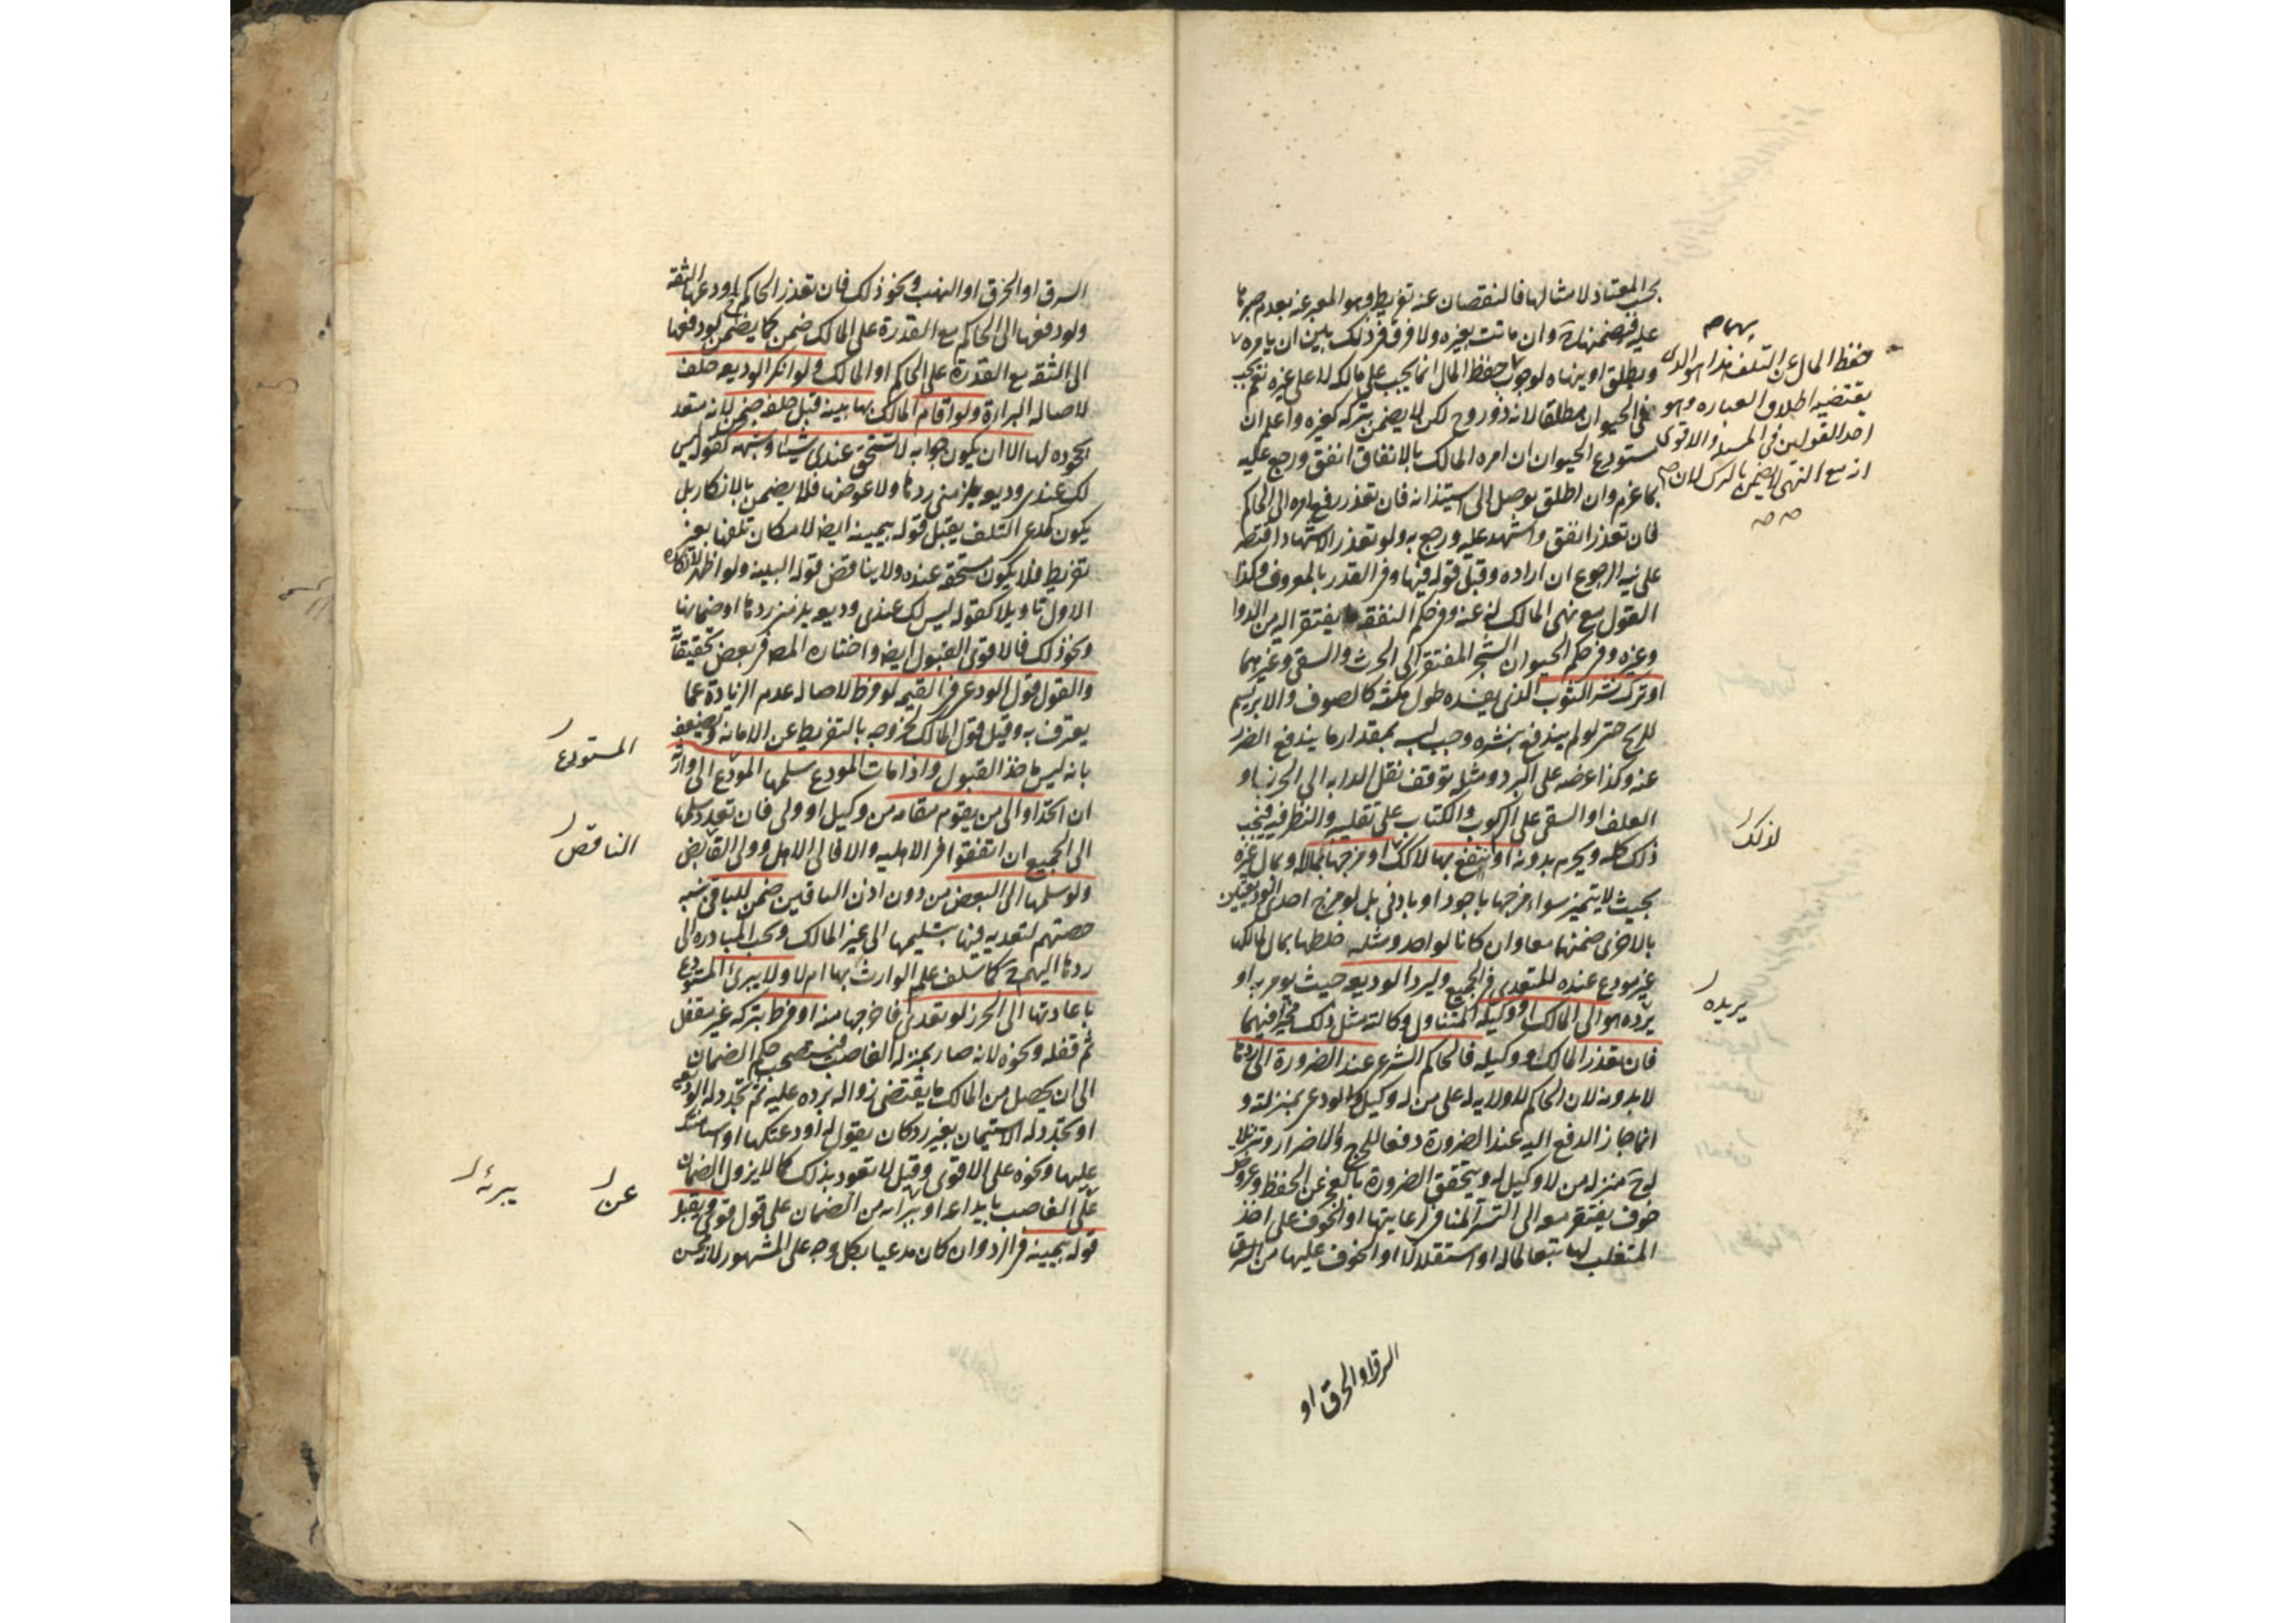 بحسب المعتاد لامثالها فالنقصان عنه تفريط وهو المعبر عنه بعدم صبرها
عليه فيضمنها ح وان ماتت بغيره ولا فرق فى ذلك بين ان يامره
ويطلق او ينهاه لوجوب حفظ المال انما يجب على مالكه لا على غيره نعم يجب
فى الحيوان مطلقا لانه ذو روح لكن لا يضمن بتركه كغيره واعلم ان
مستودع الحيوان ان امره المالك بالانفاق انفق ورجع عليه
بما غرم وان اطلق توصل الى استيذانه فان تعذر رفع امره الى الحاكم
فان تعذر انفق واشهد عليه ورجع به ولو تعذر الاشهاد اقتصر
على نيه الرجوع ان اراده وقبل قوله فيها وفى القدر بالمعروف وكذا
القول مع نهى المالك له عنه وفى حكم النفقه ما يفتقر اليه من الدوا
وغيره وفى حكم الحيوان الشجر المفتقر الى الحرث والسقى وغيرهما
او ترك نشر الثوب الذى يفسده طول مكثه كالصوف والابريسم
للريح حتى لو لم يندفع بنشره وجب لبسه بمقدار ما يندفع الضرر
عنه وكذا عرضه على البرد ومثله توقف نقل الدابه الى الحرز او
العلف او السقى على الركوب والكتاب على تقليبه والنظر فيه فيجب
ذلك كله ويحرم بدونه او انتفع بها لا لذلك او مزجها بماله او بمال غيره
بحيث لا يتميز سواء مزجها باجود او بادنى بل لو مزج احدى الوديعتين
بالاخرى ضمنها معا وان كانا لواحد ومثله خلطها بمال لمالكها
غير مودع عنده للتعدى فى الجميع وليرد الوديعه حيث يومر به او
يرده هو الى المالك او وكيله المتناول وكالته مثل ذلك مخيرا فيهما
فان تعذر المالك او وكيله فالحاكم الشرعى عند الضرورة الى ردها
لا بدونه لان الحاكم لا ولايه له على من له وكيل والودعى بمنزلته و
انما جاز الدفع اليه عند الضرورة دفعا للحرج والاضرار وتنزيلا
له ح منزله من لا وكيل له ويتحقق الضرورة بالعجز عن الحفظ وعروض
خوف يفتقر معه الى التستر المنافى لرعايتها او الخوف على اخذ
المتغلب لها تبعا لماله او استقلالا او الخوف عليها من السرق
حفظ المال عن التلف هذا هو الذى
يقتضيه اطلاق العباره وهو
احد القولين فى المسئله والاقوى
انه مع النهى لا يضمن بالترك لان
لذلك
يريده
السرق او الحرق او
السرق او الحرق او النهب ونحو ذلك فان تعذر الحاكم اودعها الثقه
ولو دفعها الى الحاكم مع القدرة على المالك ضمن كما يضمن لو دفعها
الى الثقه مع القدرة على الحاكم او المالك ولو انكر الوديعه حلف
لاصاله البراءة ولو اقام المالك بها بينه قبل حلفه ضمن لانه متعد
بجحوده لها الا ان يكون جوابه لا تستحق عندى شيئا وشبهه كقوله ليس
لك عندى وديعه يلزمنى ردها ولا عوضها فلا يضمن بالانكار بل
يكون كمدعى التلف يقبل قوله بيمينه ايضا لامكان تلفها بغير
تفريط فلا يكون مستحقه عنده ولا يناقض قوله البينه ولو اظهر لانكاره
الاول تاويلا كقوله ليس لك عندى وديعه يلزمنى ردها او ضمانها
ونحو ذلك فالاقوى القبول ايضا واختاره المص فى بعض تحقيقاته
والقول قول الودعى فى القيمه لو فرط لاصاله عدم الزيادة عما
يعترف به وقيل قول المالك لخروجه بالتفريط عن الامانه ويضعف
بانه ليس ماخذ القبول واذا مات المودع سلمها المودع الى وارثه
ان اتحد او الى من يقوم مقامه من وكيل او ولى فان تعدد سلمها
الى الجميع ان اتفقوا فى الاهليه والا فالى الاهل وولى الناقص
ولو سلمها الى البعض من دون اذن الباقين ضمن للباقى بنسبه
حصتهم لتعديه فيها بتسليمها الى غير المالك ويجب المبادره الى
ردها اليهم ح كما سلف علم الوارث بها ام لا ولا يبرئ المستودع
باعادتها الى الحرز لو تعدى فاخرجها منه او فرط بتركه غير مقفل
ثم قفله ونحوه لانه صار بمنزله الغاصب فيستصحب حكم الضمان
الى ان يحصل من المالك ما يقتضى زواله برده عليه ثم تجدد له الوديعه
او يجدد له الاستيمان بغير رد كان يقول له اودعتكها او استامنتك
عليها ونحوه على الاقوى وقيل لا تعود بذلك كما لا يزول الضمان
على الغاصب بايداعه او يبراءه من الضمان على قول قوى ويقبل
قوله بيمينه فى الرد وان كان مدعيا بكل وجه على المشهور لانه محسن
المستودع
الناقص
عن
يبرئه